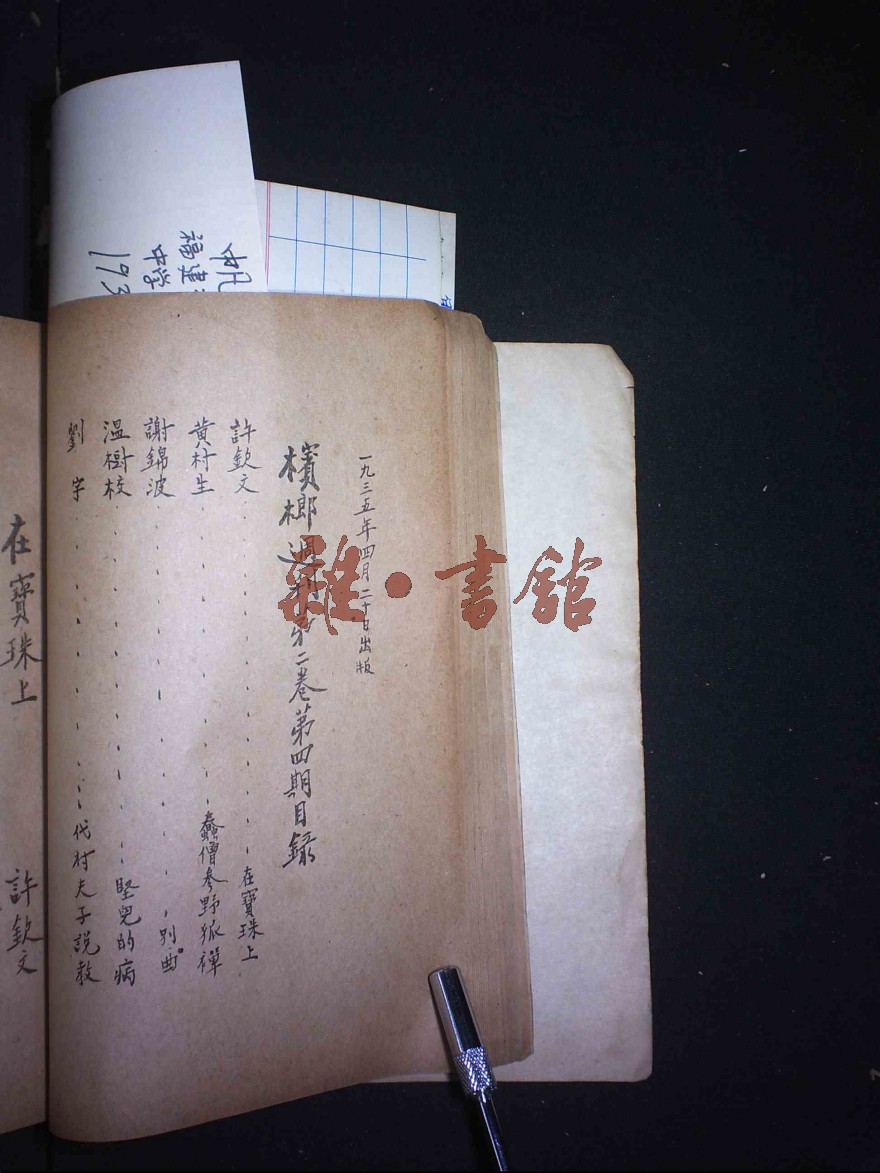 一九三五年四月二十日出版
檳榔週刊第二卷第四期目錄
許欽文・・・・・・・・・・在寶珠上
黃村生・・・・・・・・・蠢僧參野狐禪
謝錦波・・・・・・・・・・・別曲
溫樹校・・・・・・・・・・堅兒的病
劉宇・・・・・・・・・代村夫子說教
在寶珠上
許欽文
帆
福建
中學
193
雜・書館